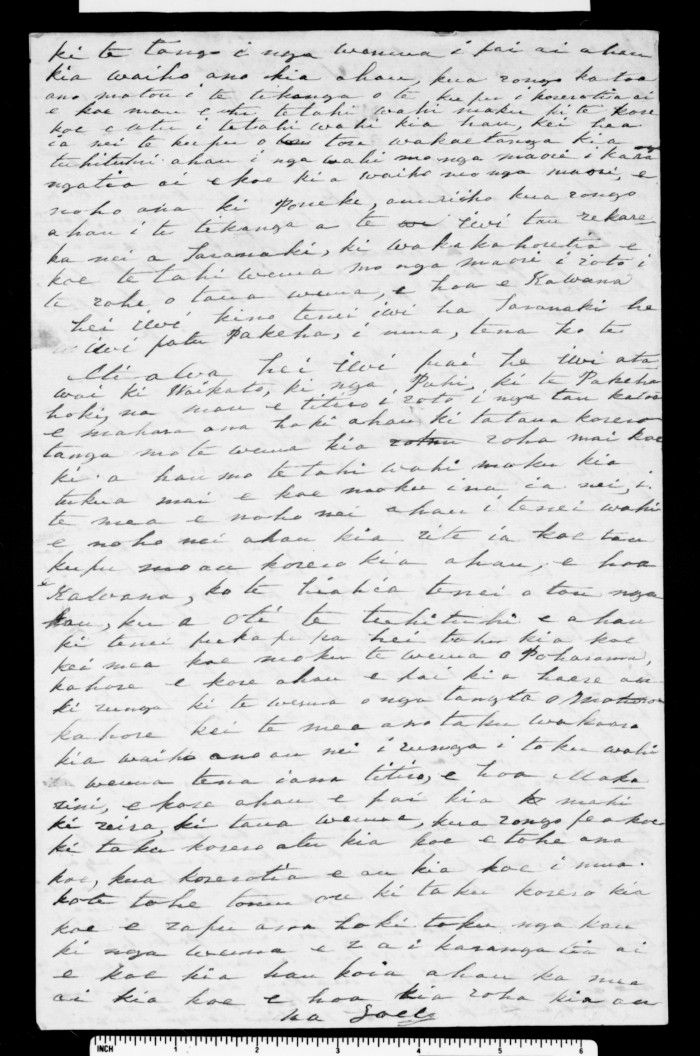 ki te tango i nga wenua i pai ai ahau
kia waiho ano kia ahau, kua rongo katoa
ano matou i te tikanga o te kupu i korerotia ai
e koe mau e te tahi wahi maku ki te kore
koe e atu i tetahi wahi kia hau, kei hea
ia nei te kupu o tou wakaetanga kia
tuhituhi ahau i nga wahi mo nga maori i kara
ngatia ai e koe kia waiho mo nga maori, e
noho ana ki Poneke, kua rongo
ahau i te tikanga a te iwi tau rekare
ka nei a Taranaki, ki wakakahoutia e
koe te tahi wenua mo nga maori i roto i
te rohe o taua wenua, e hoa e Kawana
hei iwi kino tenei iwi ha Taranaki he
iwi patu Pakeha, i mua, tena ko te
Ati awa hei iwi pai he iwi ata
wai ki Waikato, ki nga Puhi, ki te Pakeha
hoki, na mau e titiro i roto i nga tau katoa
e mahara ana hoki ahau ki tataua korero
tanga mo te wenua kia roha mai koe
ki a hau mo te tahi wahi maku kia
tukua mai e koe moku ina ia nei, i
te mea e noho nei ahau i tenei wahi
e noho nei ahau kia rite ia koe tau
kupu mo au korero kia ahau, e hoa
e Kawana, ko te tiahia tenei o tou nga
kau, ku a oti te tuhituhi e ahau
ki tenei pukapuka hei tohu kia koe
kei mea koe moku te wenua o Poharama,
kahore e kore ahau e pai kia haere au
ki runga ki te wenua o nga tangta o
kahore kei te mea ano taku wakaaro
kia waiho ano au nei i runga i toku wahi
wenua tena iana titiro, e hoa Maka
rini, e kore ahau e pai kia mahi
ki reira, ki taua wenua, kua rongo pea koe
ki taku korero atu kia koe e tohe ana
koe, kua korerotia e au kia koe i mua.
ko te tohe tonu au ki taku korero kia
koe e rapu ana hoki toku nga kau
ki nga wenua e ra i karangatia ai
e koe kia hau koia ahau ka mea
ai kia koe e hoa kia roha kia au